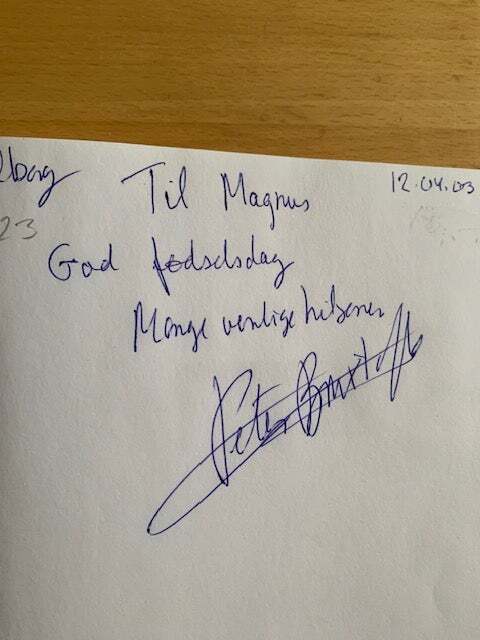 Til Magnus
12.04.03
23
God fødselsdag
Mange venlige hilsener
Peter